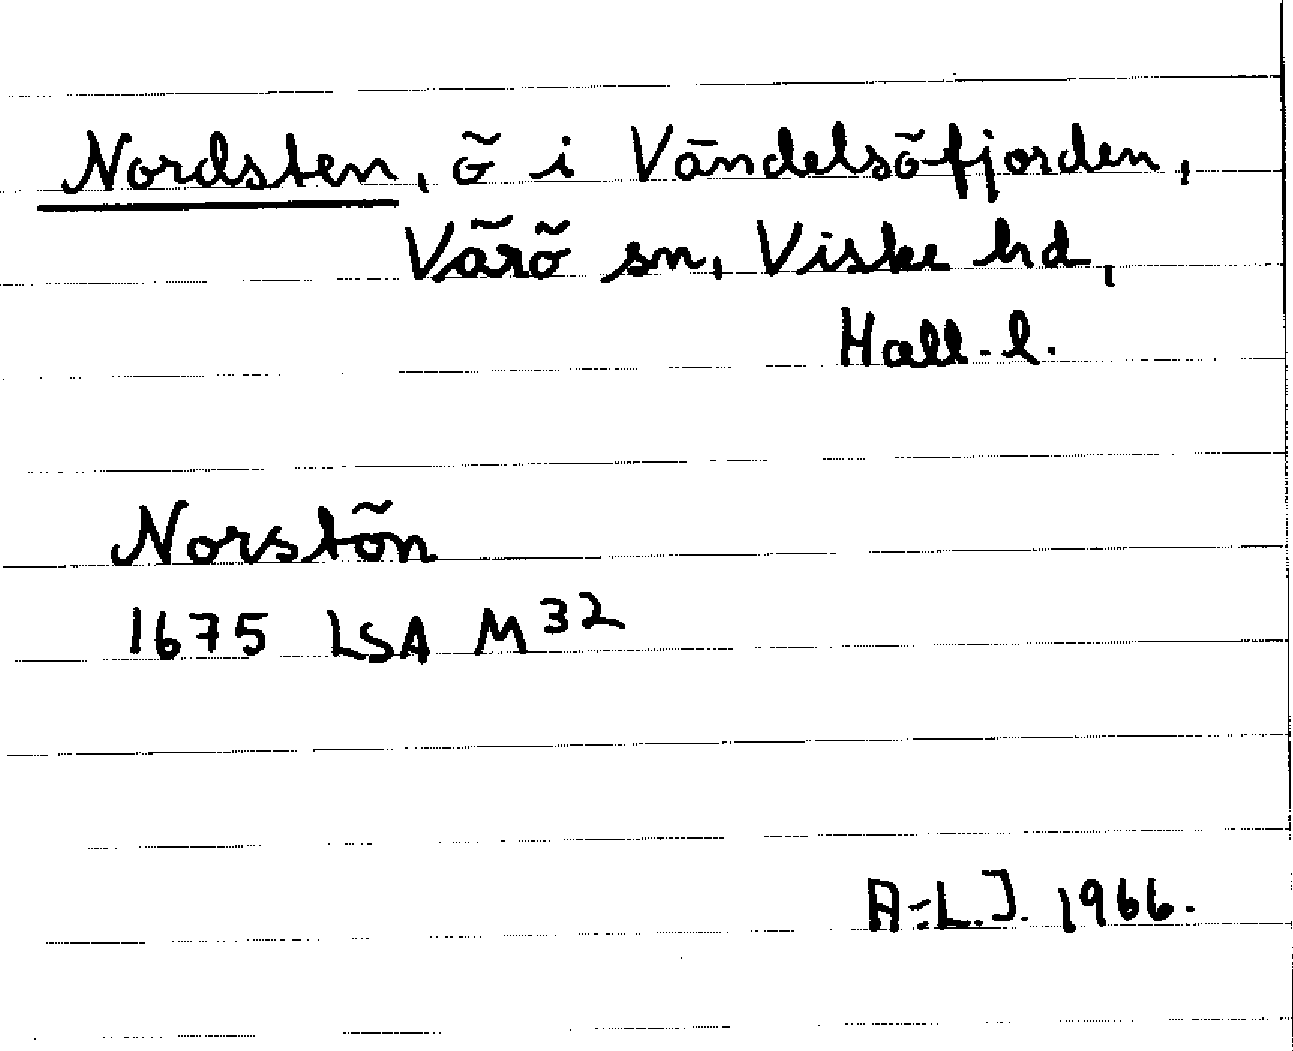 Nordsten, ö i Vändelsöfjorden,
Värö sn, Viske hd,
Hall. l.
Norstön
1675 LSA M 32
A-L.J. 1966.